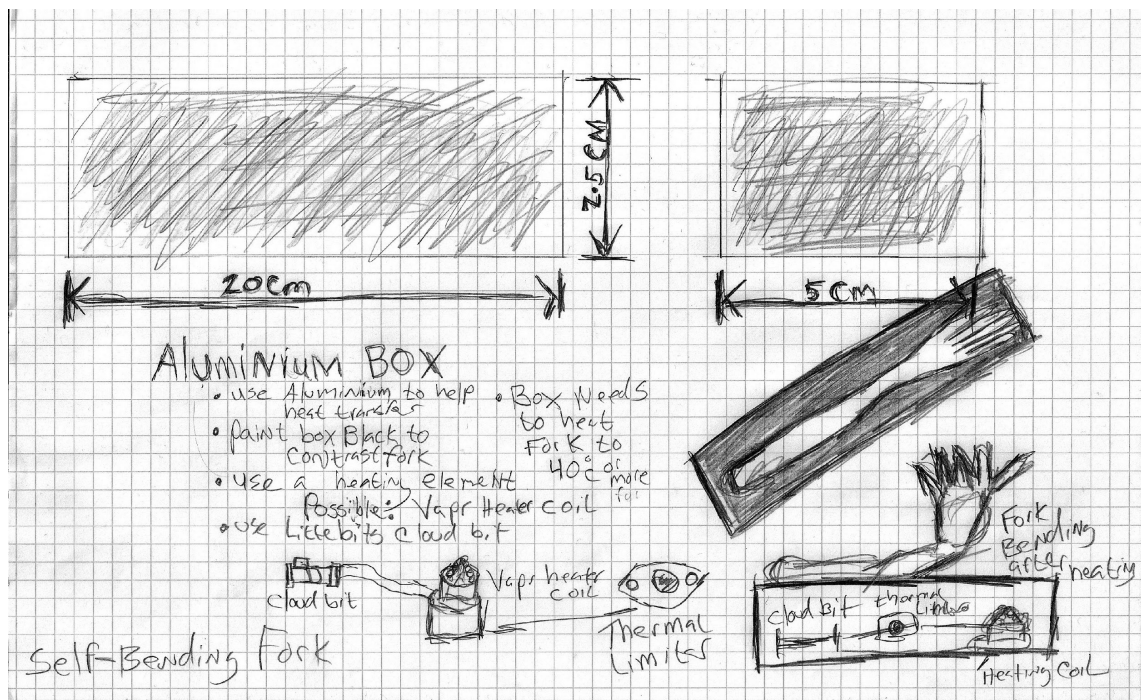 2.5 CM
20cm
5 CM
Aluminium BOX
• use Aluminium to help
heat transfer
• paint box Black to
Contrast fork
• use a heating element
Possible: Vapr Heater coil
• use Littebits cloud bit
• Box Needs
to heat
Fork to
40°c or
more
Fork
Bending
after heating
cloud bit
Vapr heater
coil
Thermal
Limiter
cloud bit
thermal
Heating coil
Self-Bending Fork